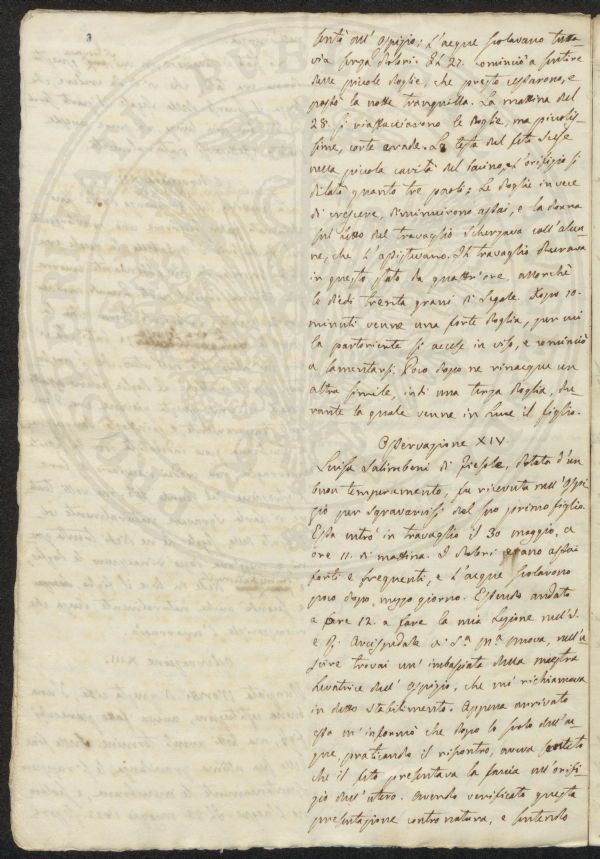 sentà nell' Ospizio; L'acque scolavano tutta-
via senza dolori. Il 27. cominciò a sentire
delle piccole doglie, che presto cessarono, e
passò la notte tranquilla. La mattina del
28. si riaffacciarono le doglie, ma piccolis-
sime, corte e rade. La testa del feto scese
nella piccola cavità del bacino, e l'orifizio si
dilatò quanto tre paoli; Le doglie invece
di crescere, diminuirono assai, e la donna
sul letto del travaglio scherzava coll' alun-
ne, che l'assistevano. Il travaglio durava
in questo stato da quattr'ore, allorchè
le diedi trenta grani di Segale. Dopo 10.
minuti venne una forte doglia, per cui
la partoriente si accese in viso, e cominciò
a lamentarsi. Poco dopo ne rinacque un
altra simile, indi una terza doglia, du-
rante la quale venne in luce il figlio.
Osservazione XIV.
Luisa Salimbeni di Fiesole, dotata d'un
buon temperamento, fu ricevuta nell' Ospi-
zio per sgravarvisi del suo primo figlio.
Essa entrò in travaglio il 30 maggio, a
ore 11. di mattina. I dolori erano assai
forti e frequenti, e l'acque scolavano
poco dopo mezzo giorno. Essendo andato
a ore 12. a fare la mia Lezione nell' I.
e R. Arcispedale di S.ª M.ª Nuova, nell' u-
scire trovai un' imbasciata della maestra
Levatrice dell' Ospizio, che mi richiamava
in detto stabilimento. Appena arrivato
essa m'informò che dopo lo scolo dell' ac-
que, praticando il riscontro, aveva sentito
che il feto presentava la faccia all' orifi-
zio dell' utero. Avendo verificata questa
presentazione contronatura, e sentendo